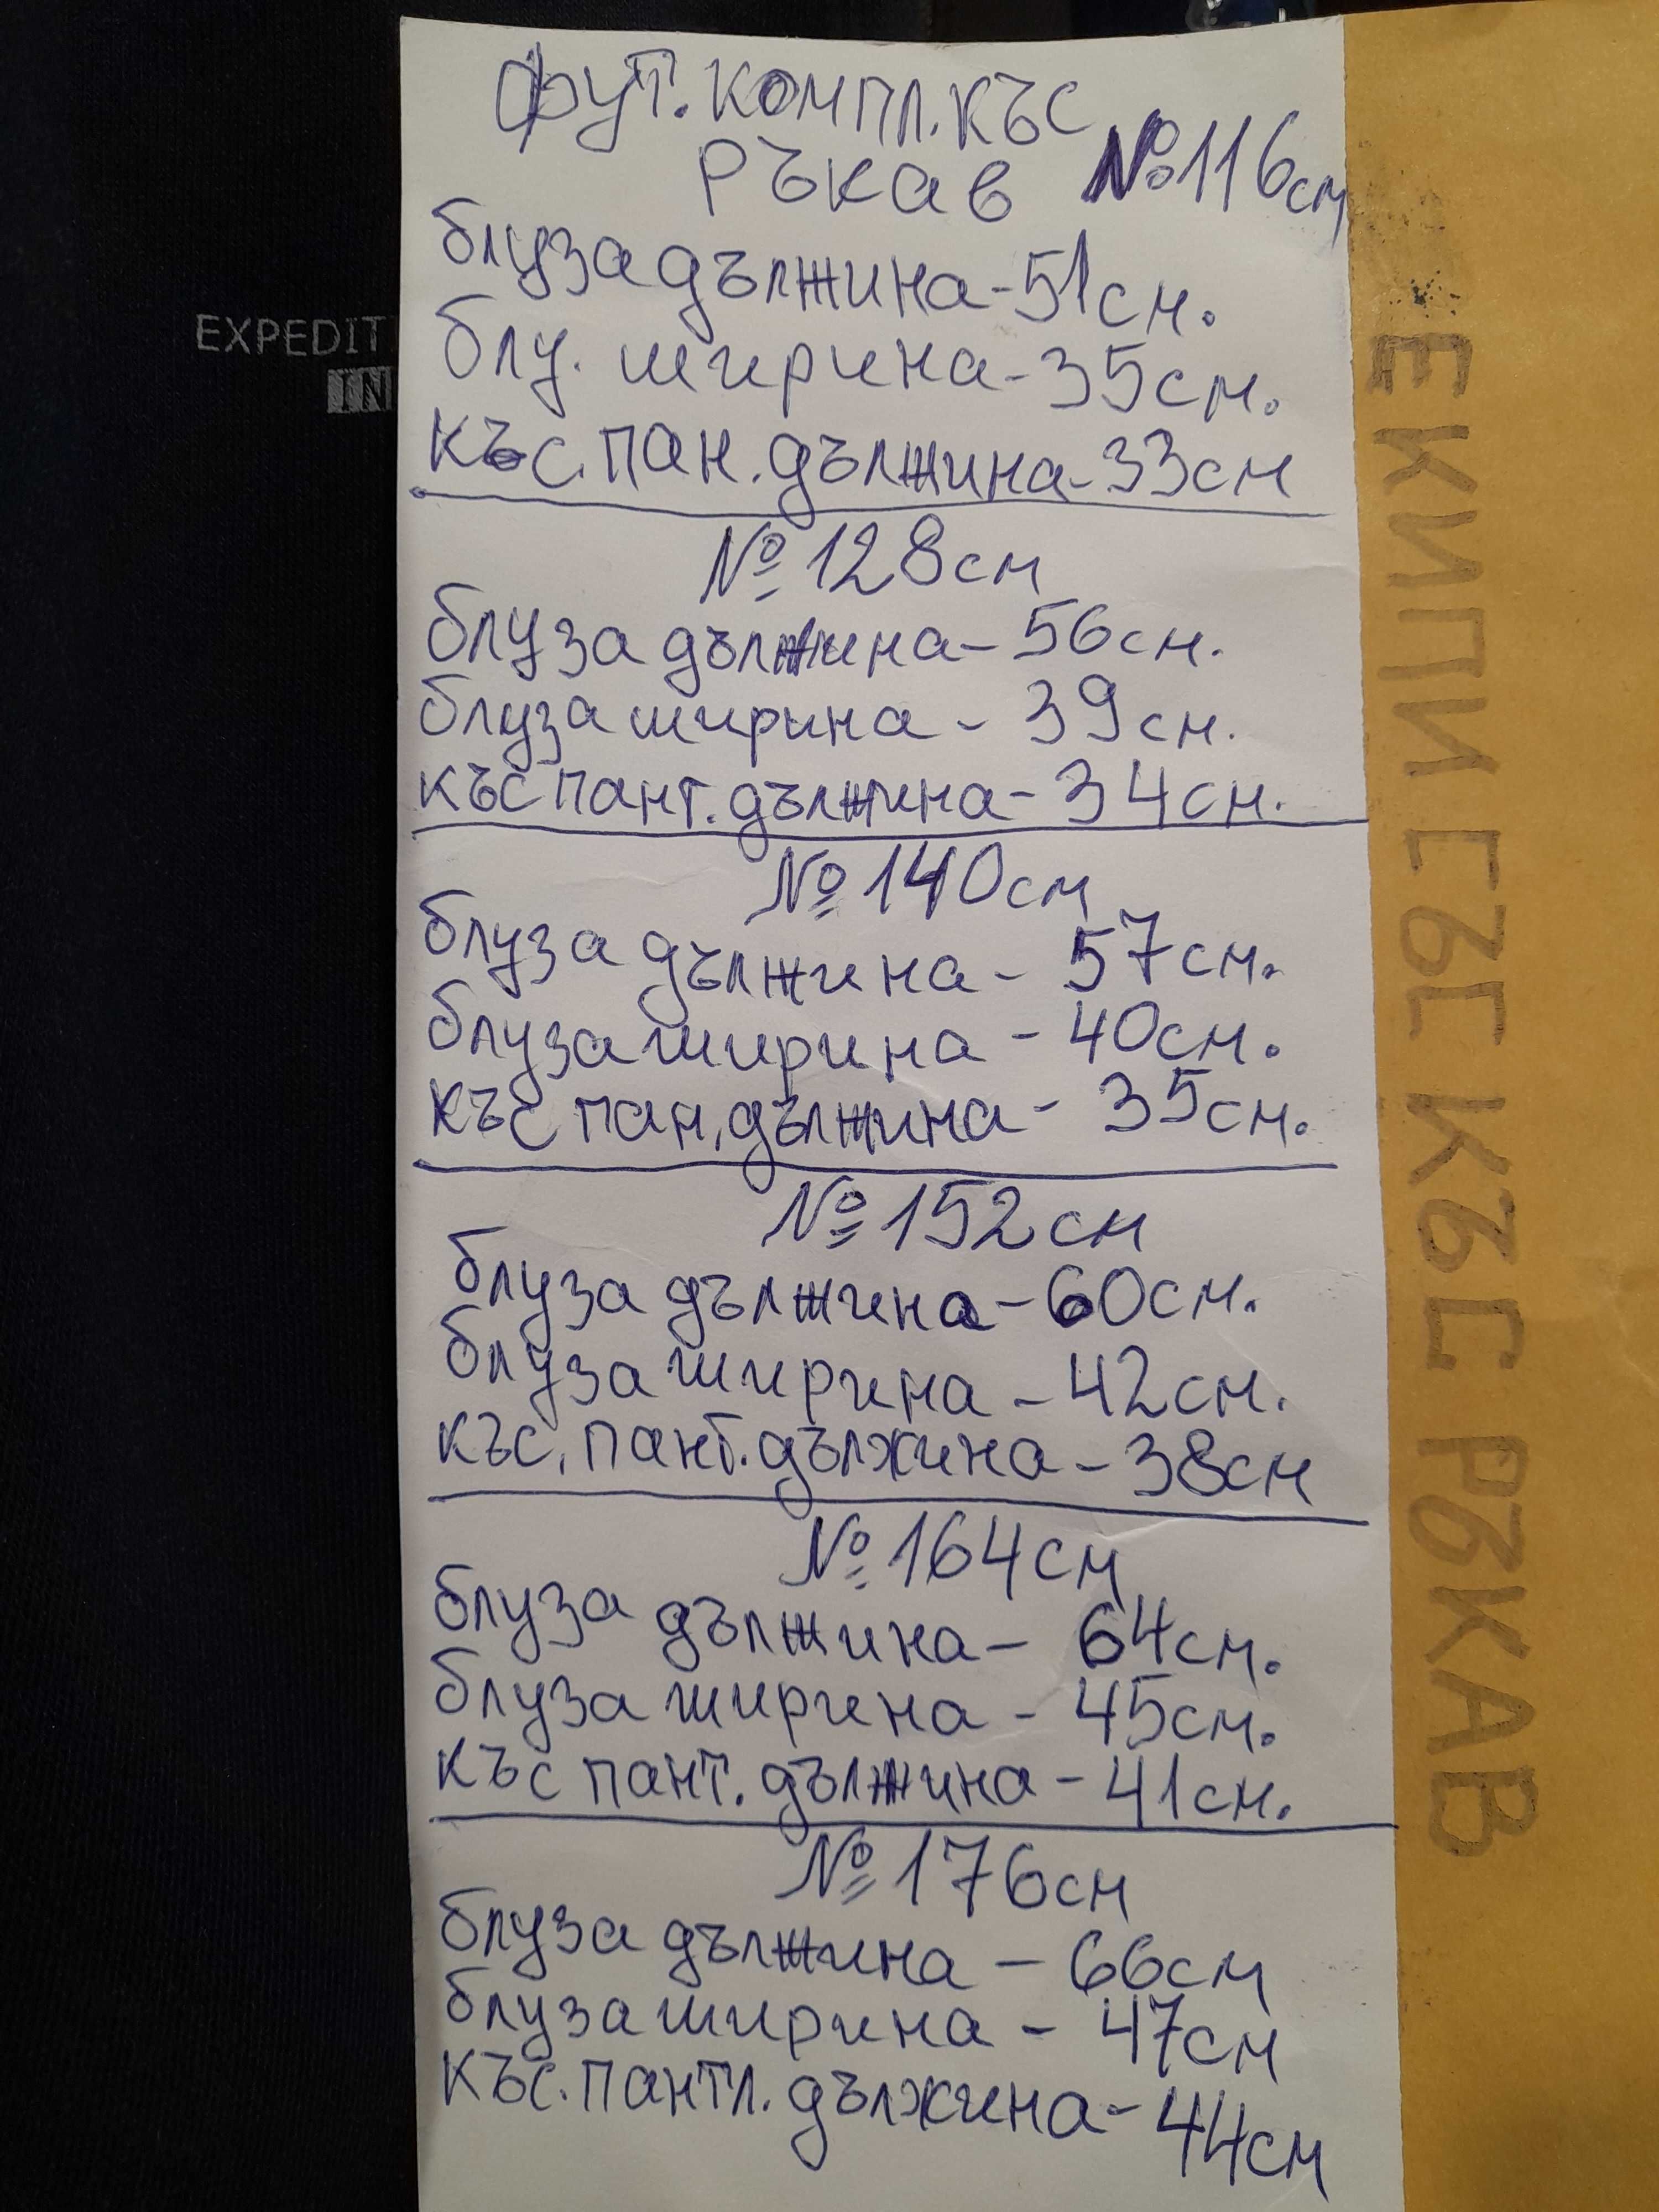 фут. компл. къс
ръкав №116см
блуза дължина-51см.
блу. ширина-35см.
къс. пан. дължина-33см
№128см
блуза дължина-56см.
блуза ширина-39см.
къс пант. дължина-34см.
№140см
блуза дължина-57см.
блуза ширина-40см.
къс пан. дължина-35см.
№152см
блуза дължина-60см.
блуза ширина-42см.
къс. пант. дължина-38см
№164см
блуза дължина-64см.
блуза ширина-45см.
къс пант. дължина-41см.
№176см
блуза дължина-66см
блуза ширина-47см
къс. пантл. дължина-44см
ЕКИПИ С КЪС РЪКАВ
EXPEDIT
IN